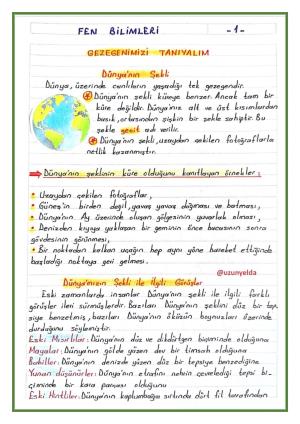 FEN BİLİMLERİ
-1-
GEZEGENİMİZİ TANIYALIM
Dünya'nın Şekli
Dünya, üzerinde canlıların yaşadığı tek gezegendir.
Dünya'nın şekli küreye benzer. Ancak tam bir
küre değildir. Dünya'mız alt ve üst kısımlardan
basık, ortasından şişkin bir şekle sahiptir. Bu
şekle geoit adı verilir.
Dünya'nın şekli, uzaydan çekilen fotoğraflarla
netlik kazanmıştır.
Dünya'nın şeklinin küre olduğunu kanıtlayan örnekler;
• Uzaydan çekilen fotoğraflar,
• Güneş'in birden değil, yavaş yavaş doğması ve batması,
• Dünya'nın Ay üzerinde oluşan gölgesinin yuvarlak olması,
• Denizden kıyıya yaklaşan bir geminin önce bacasının sonra
gövdesinin görünmesi,
• Bir noktadan kalkan uçağın hep aynı yöne hareket ettiğinde
başladığı noktaya geri gelmesi.
@uzunyelda
Dünya'mızın Şekli ile İlgili Görüşler
Eski zamanlarda insanlar Dünya'nın şekli ile ilgili farklı
görüşler ileri sürmüşlerdir. Bazıları Dünya'nın şeklini düz bir tep
siye benzetmiş, bazıları Dünya'nın öküzün boynuzları üzerinde
durduğunu söylemiştir.
Eski Mısırlılar: Dünya'nın düz ve dikdörtgen biçiminde olduğuna
Mayalar: Dünya'nın gölde yüzen dev bir timsah olduğuna
Babiller: Dünya'nın denizde yüzen düz bir tepsiye benzediğine
Yunan düşünürler: Dünya'nın etrafını nehrin çevelediği tepsi bi-
çiminde bir kara parçası olduğunu
Eski Hintliler: Dünya'nın kaplumbağa sırtında dört fil tarafından